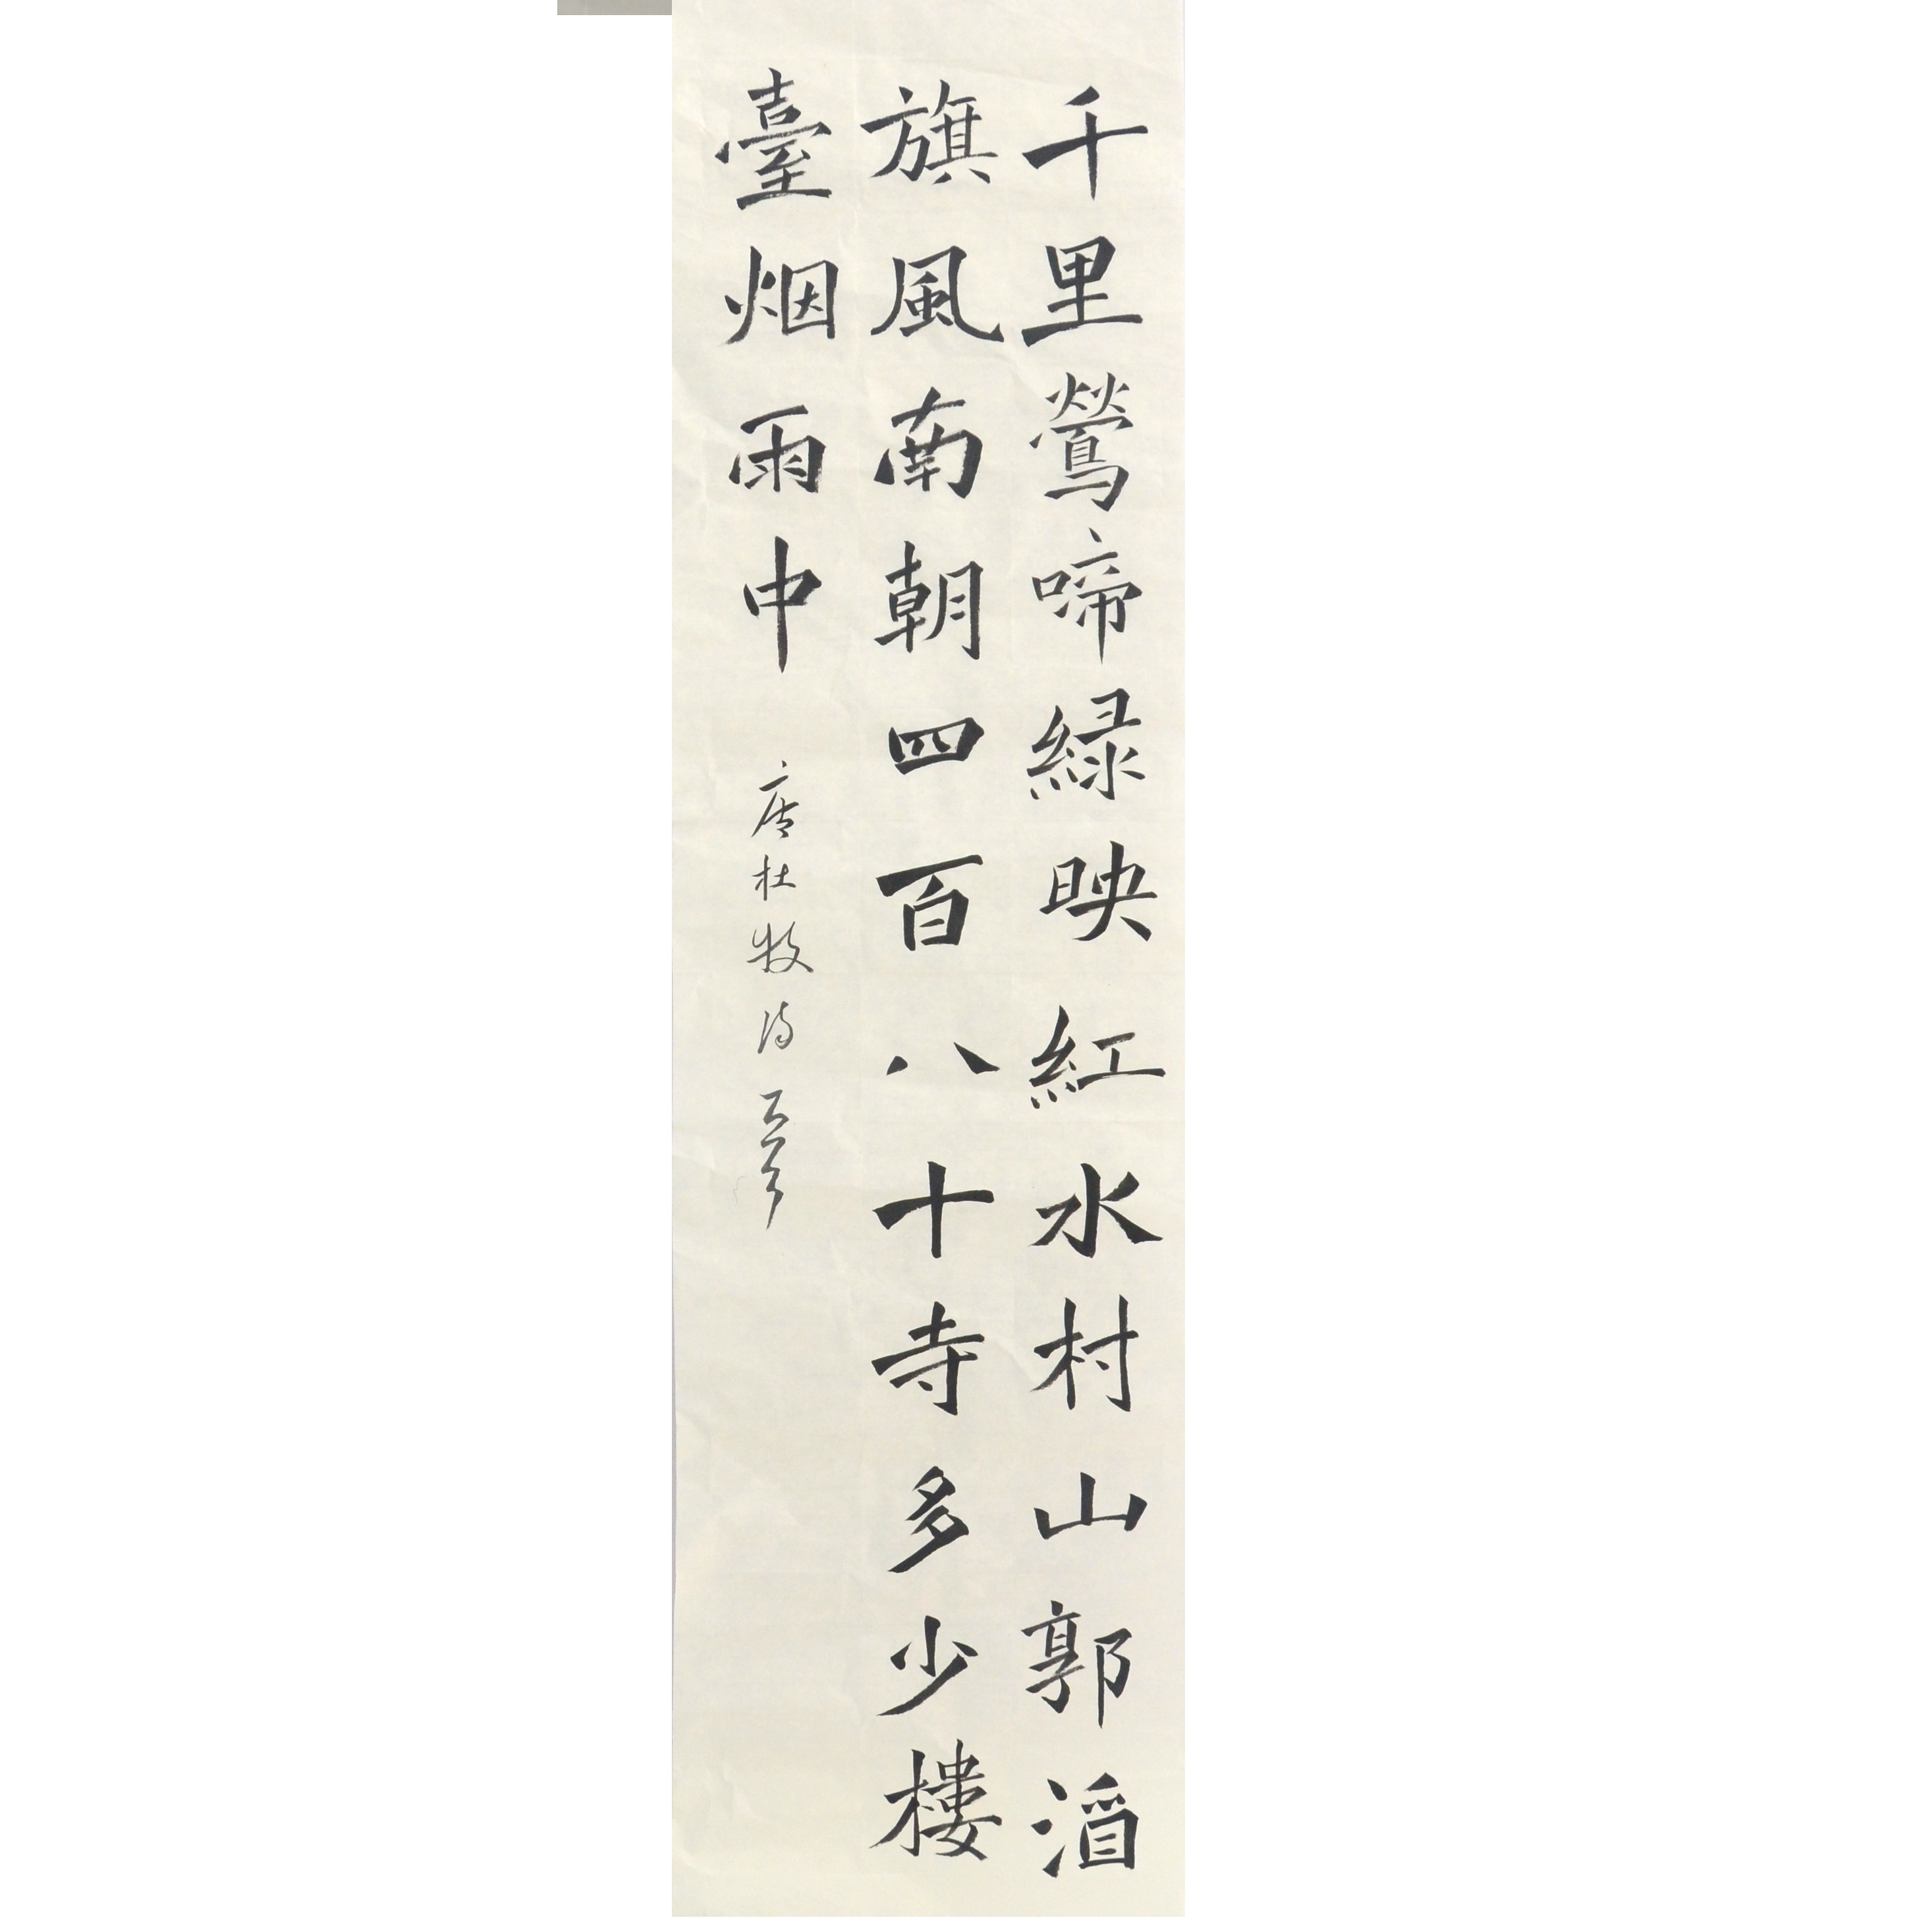 千里鶯啼緑映紅水村山郭酒
旗風南朝四百八十寺多少樓
臺烟雨中 唐杜牧诗